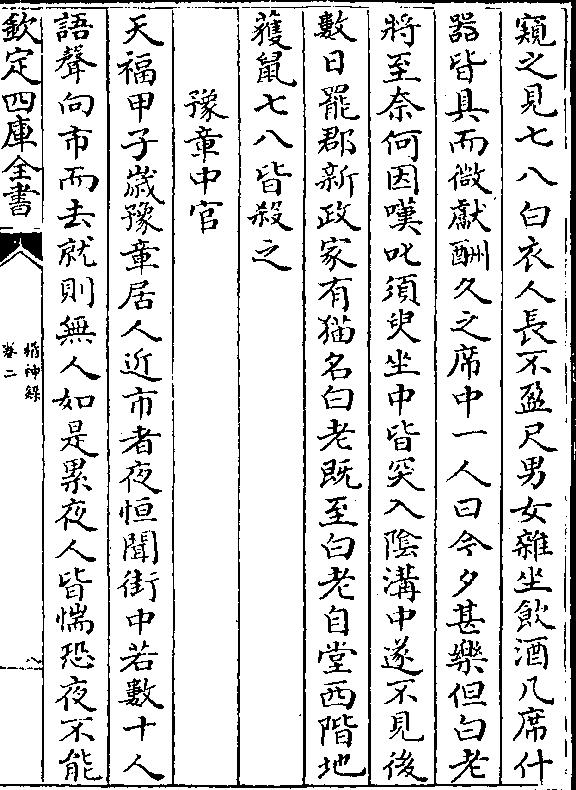 窺之見七八白衣人長不盈尺男女雜坐飲酒几席什
器皆具而微獻酬久之席中一人曰今夕甚樂但白老
將至奈何因嘆叱須臾坐中皆突入陰溝中遂不見後
數日罷郡新政家有猫名白老既至白老自堂西階地
蒦鼠七八皆殺之
豫章中官
天福甲子嵗豫章居人近市者夜恒聞街中若數十人
語聲向市而去就則無人如是累夜人皆惴恐夜不能
欽定四庫全書
稽神錄
卷二